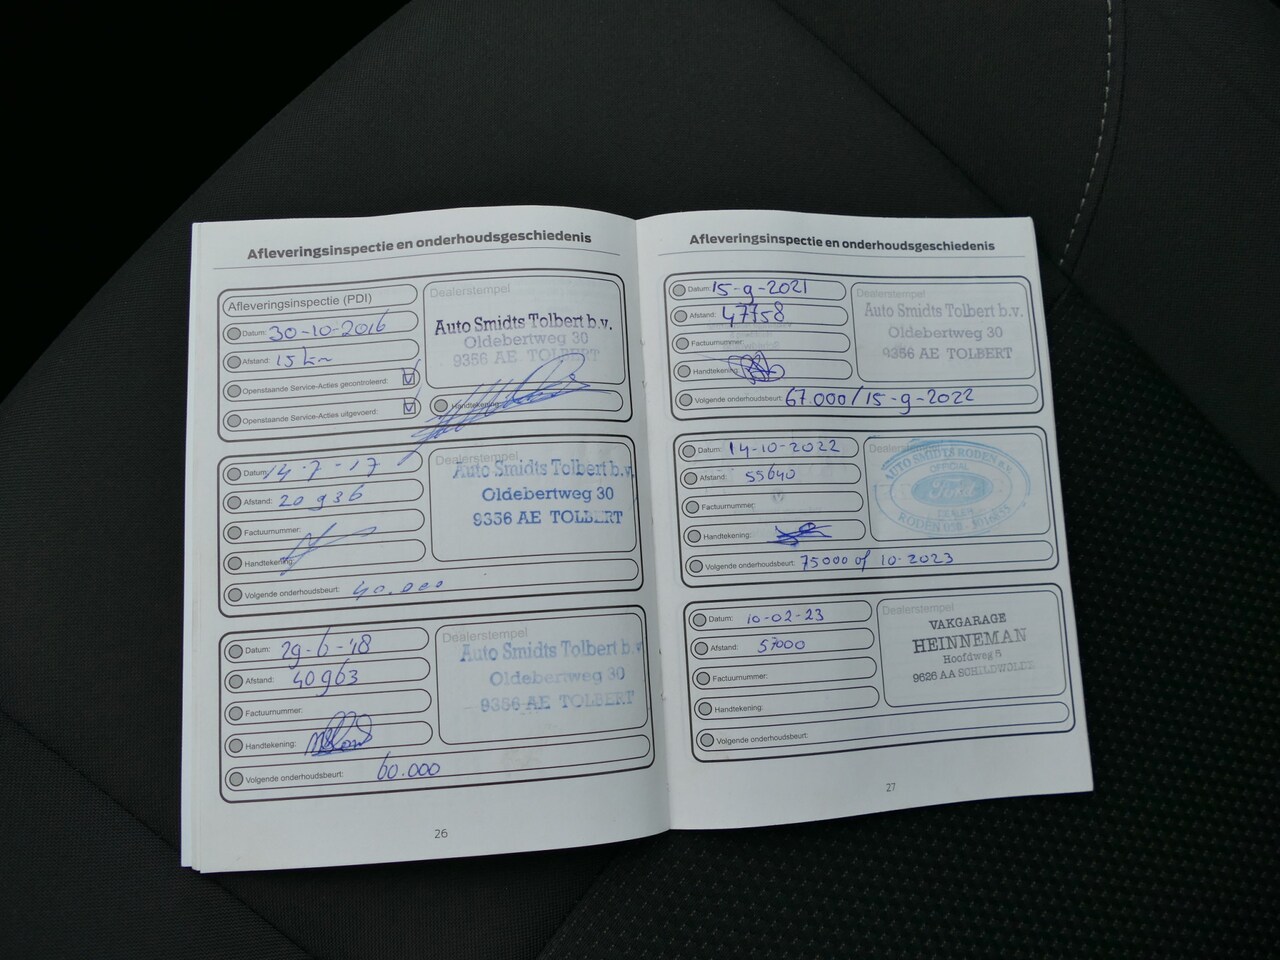 Afleveringsinspectie en onderhoudsgeschiedenis
Afleveringsinspectie (PDI)
Datum: 30-10-2016
Afstand: 15 km
Openstaande Service-Acties gecontroleerd:
Openstaande Service-Acties uitgevoerd:
Dealerstempel
Auto Smidts Tolbert b.v.
Oldebertweg 30
9356 AE TOLBERT
Handtekening:
Datum: 14-7-17
Afstand: 20936
Factuurnummer:
Handtekening:
Volgende onderhoudsbeurt: 40.000
Dealerstempel
Auto Smidts Tolbert b.v.
Oldebertweg 30
9356 AE TOLBERT
Datum: 29-6-'18
Afstand: 40963
Factuurnummer:
Handtekening:
Volgende onderhoudsbeurt: 60.000
Dealerstempel
Auto Smidts Tolbert b.v.
Oldebertweg 30
9356 AE TOLBERT
26
Afleveringsinspectie en onderhoudsgeschiedenis
Datum: 15-9-2021
Afstand: 47758
Factuurnummer:
Handtekening:
Volgende onderhoudsbeurt: 67.000/15-9-2022
Dealerstempel
Auto Smidts Tolbert b.v.
Oldebertweg 30
9356 AE TOLBERT
Datum: 14-10-2022
Afstand: 55640
Factuurnummer:
Handtekening:
Volgende onderhoudsbeurt: 75000 of 10-2023
AUTO SMIDTS RODEN B.V.
OFFICIAL
Ford
RODEN
Datum: 10-02-23
Afstand: 57000
Factuurnummer:
Handtekening:
Volgende onderhoudsbeurt:
Dealerstempel
VAKGARAGE
HEINNEMAN
Hoofdweg 5
9626 AA SCHILDWOLDE
27